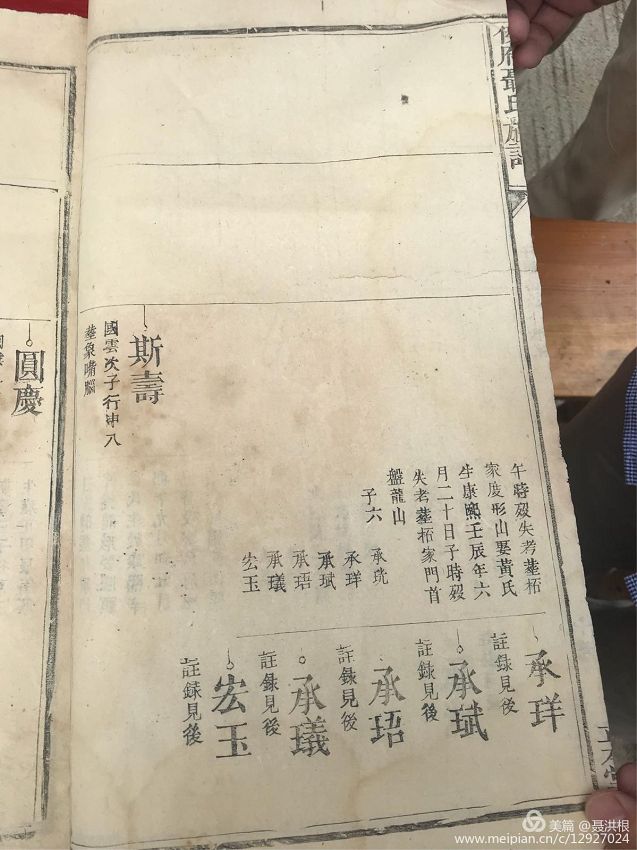 聶氏族譜
午時歿失考塟柘
家度形山娶黃氏
生康熙壬辰年六
月二十日子時歿
失考塟柘家門首
盤龍山
子六
承珗
承珜
承珷
承珸
承璣
宏玉
承珜
註錄見後
承珷
註錄見後
承珸
註錄見後
承璣
註錄見後
宏玉
註錄見後
斯壽
國雲次子行申八
塟象嘴腦
圓慶
美篇 @聂洪根
www.meipian.cn/c/12927024